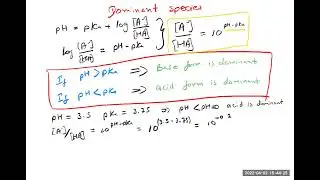 Dominant species
pH = pKa + log [A⁻]/[HA]
log [A⁻]/[HA] = pH - pKa
[A⁻]/[HA] = 10^(pH-pKa)
If pH > pKa ⇒ Base form is dominant
If pH < pKa ⇒ acid form is dominant
pH = 3.5 pKa = 3.75 ⇒ pH < pKa acid is dominant
[A⁻]/[HA] = 10^(pH-pKa) = 10^(3.5-3.75) = 10^-0.2